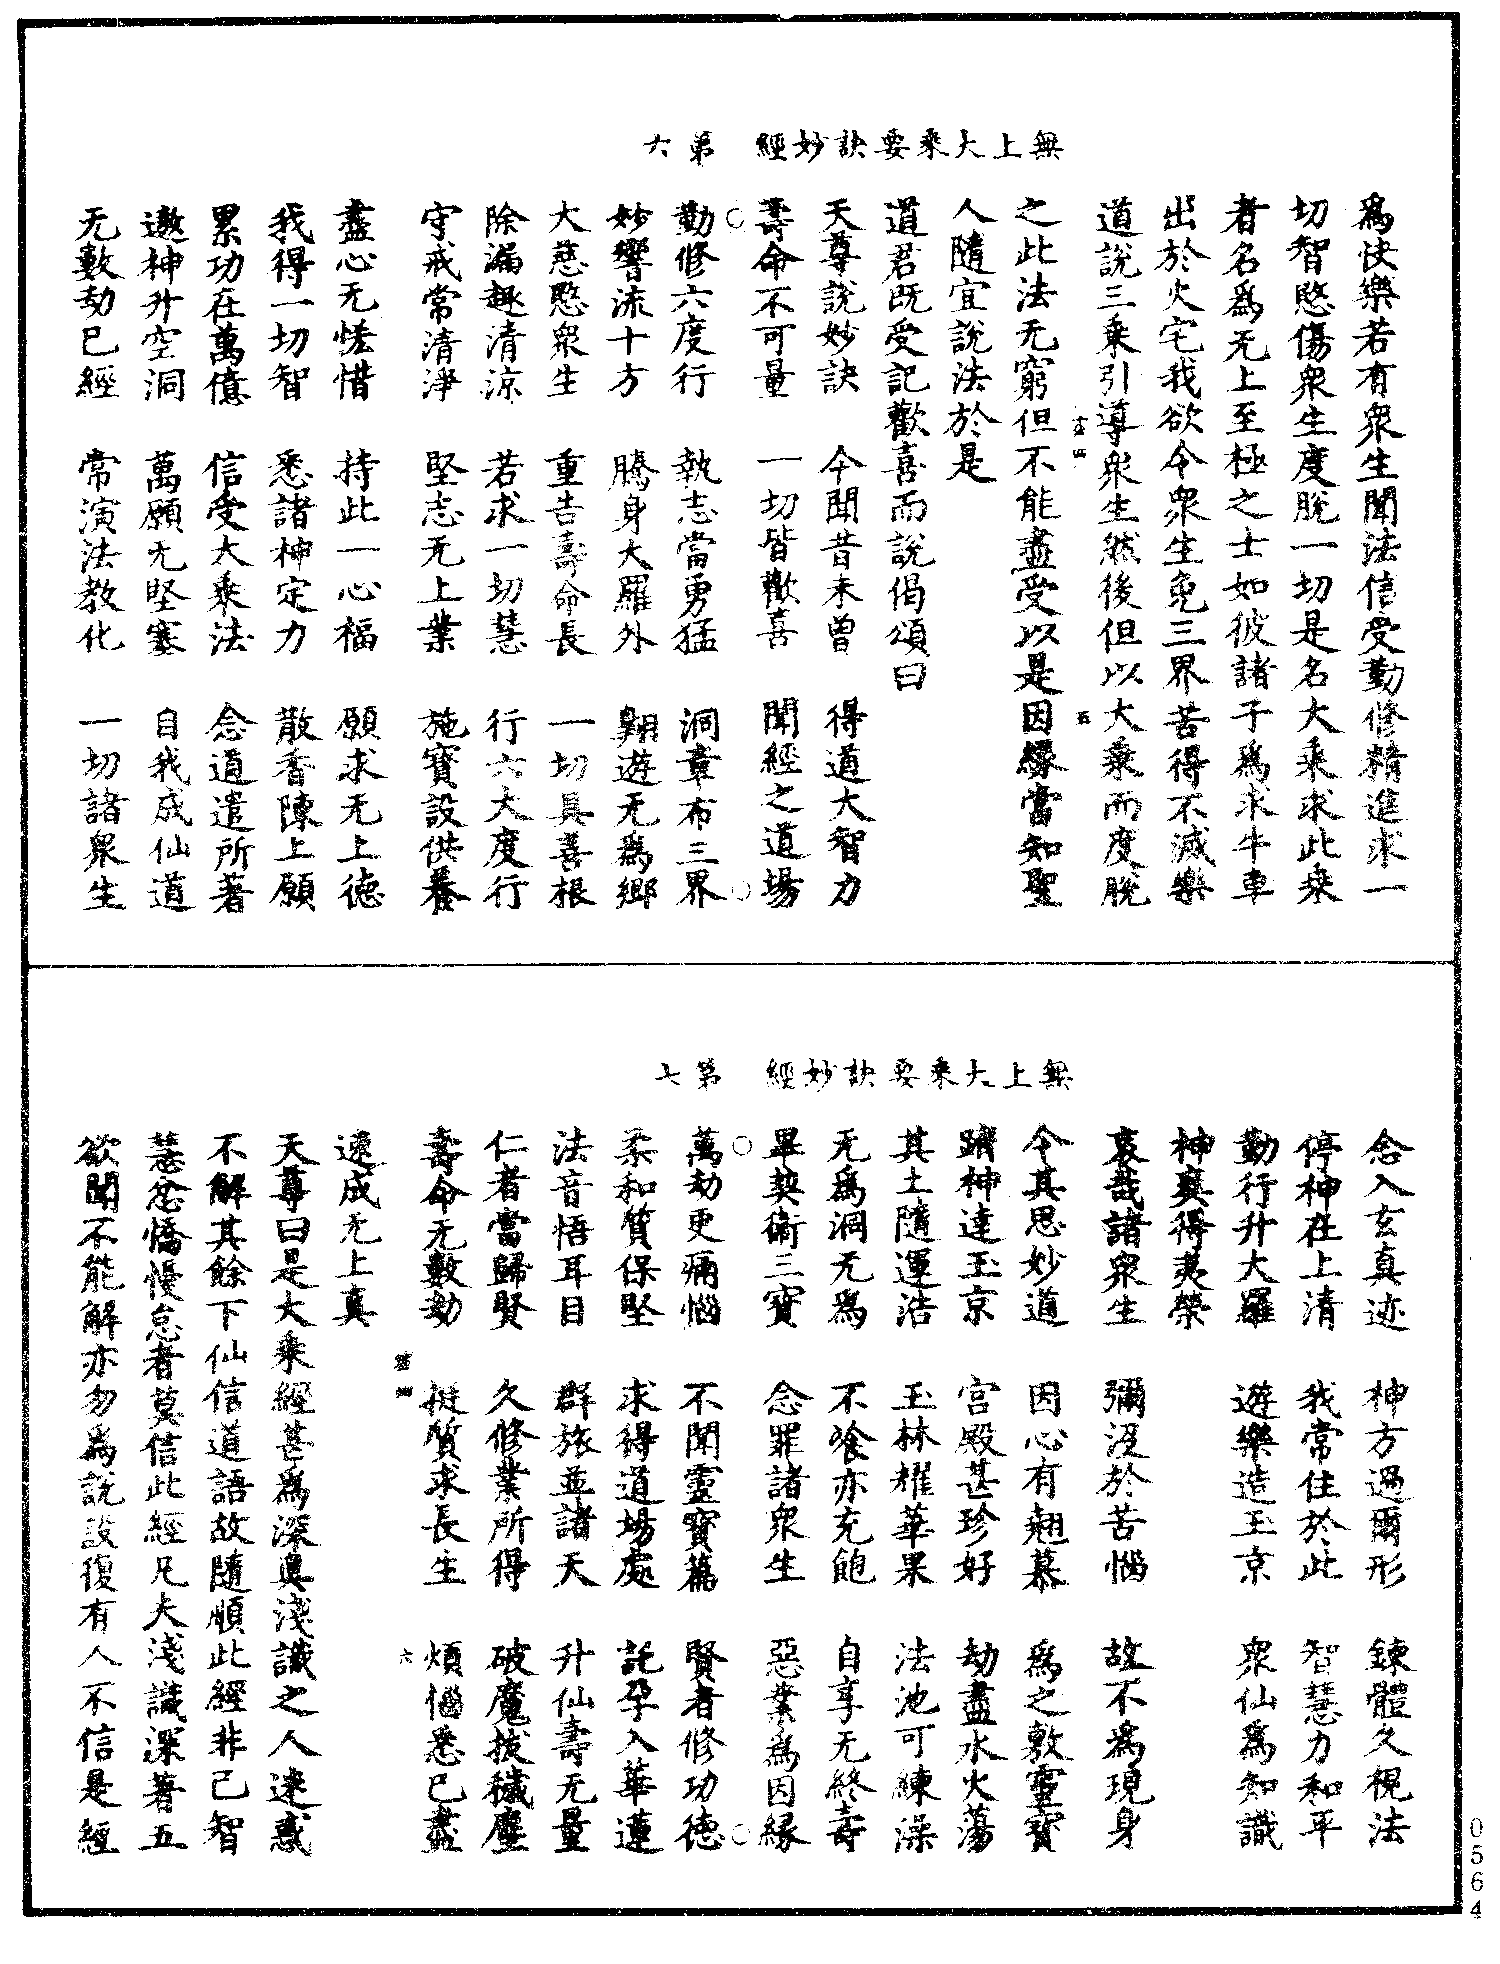 無上大乘要訣妙經　第六
爲快樂若有衆生聞法信受勤修精進求一
切智愍傷衆生度脫一切是名大乘求此乘
者名爲无上至極之士如彼諸子爲求牛車
出於火宅我欲令衆生免三界苦得不滅樂
道說三乘引導衆生然後但以大乘而度脫
之此法无窮但不能盡受以是因緣當知聖
人隨宜說法於是
道君既受記歡喜而說偈頌曰
天尊說妙訣　今聞昔未曾　得道大智力
壽命不可量　一切皆歡喜　聞經之道場
勤修六度行　執志當勇猛　洞章布三界
妙響流十方　騰身大羅外　翱遊无爲鄉
大慈愍衆生　重告壽命長　一切具善根
除漏趣清涼　若求一切慧　行六大度行
守戒常清淨　堅志无上業　施寶設供養
盡心无恡惜　持此一心福　願求无上德
我得一切智　悉諸神定力　散香陳上願
累功在萬億　信受大乘法　念道遣所著
遨神升空洞　萬願无堅塞　自我成仙道
无數劫已經　常演法教化　一切諸衆生
無上大乘要訣妙經　第七
念入玄真迹　神方過爾形　鍊體久視法
停神在上清　我常住於此　智慧力和平
勤行升大羅　遊樂造玉京　衆仙爲知識
神襄得夷榮
哀哉諸衆生　彌沒於苦惱　故不爲現身
令其思妙道　因心有翹慕　爲之敷靈寶
躋神達玉京　宮殿甚珍好　劫盡水火蕩
其土隨運浩　玉林耀華果　法池可練澡
无爲洞无爲　不飡亦充飽　自享无終壽
畢契衛三寶　念罪諸衆生　惡業爲因緣
萬劫更痛惱　不聞靈寶篇　賢者修功德
柔和質保堅　求得道場處　託孕入華蓮
法音悟耳目　群旅並諸天　升仙壽无量
仁者當歸賢　久修業所得　破魔拔穢塵
壽命无數劫　挺質求長生　煩惱悉已盡
速成无上真
天尊曰是大乘經甚爲深奧淺識之人迷惑
不解其餘下仙信道語故隨順此經非己智
慧忿憍慢怠者莫信此經凡夫淺識深著五
欲聞不能解亦勿爲說設復有人不信是經
0564